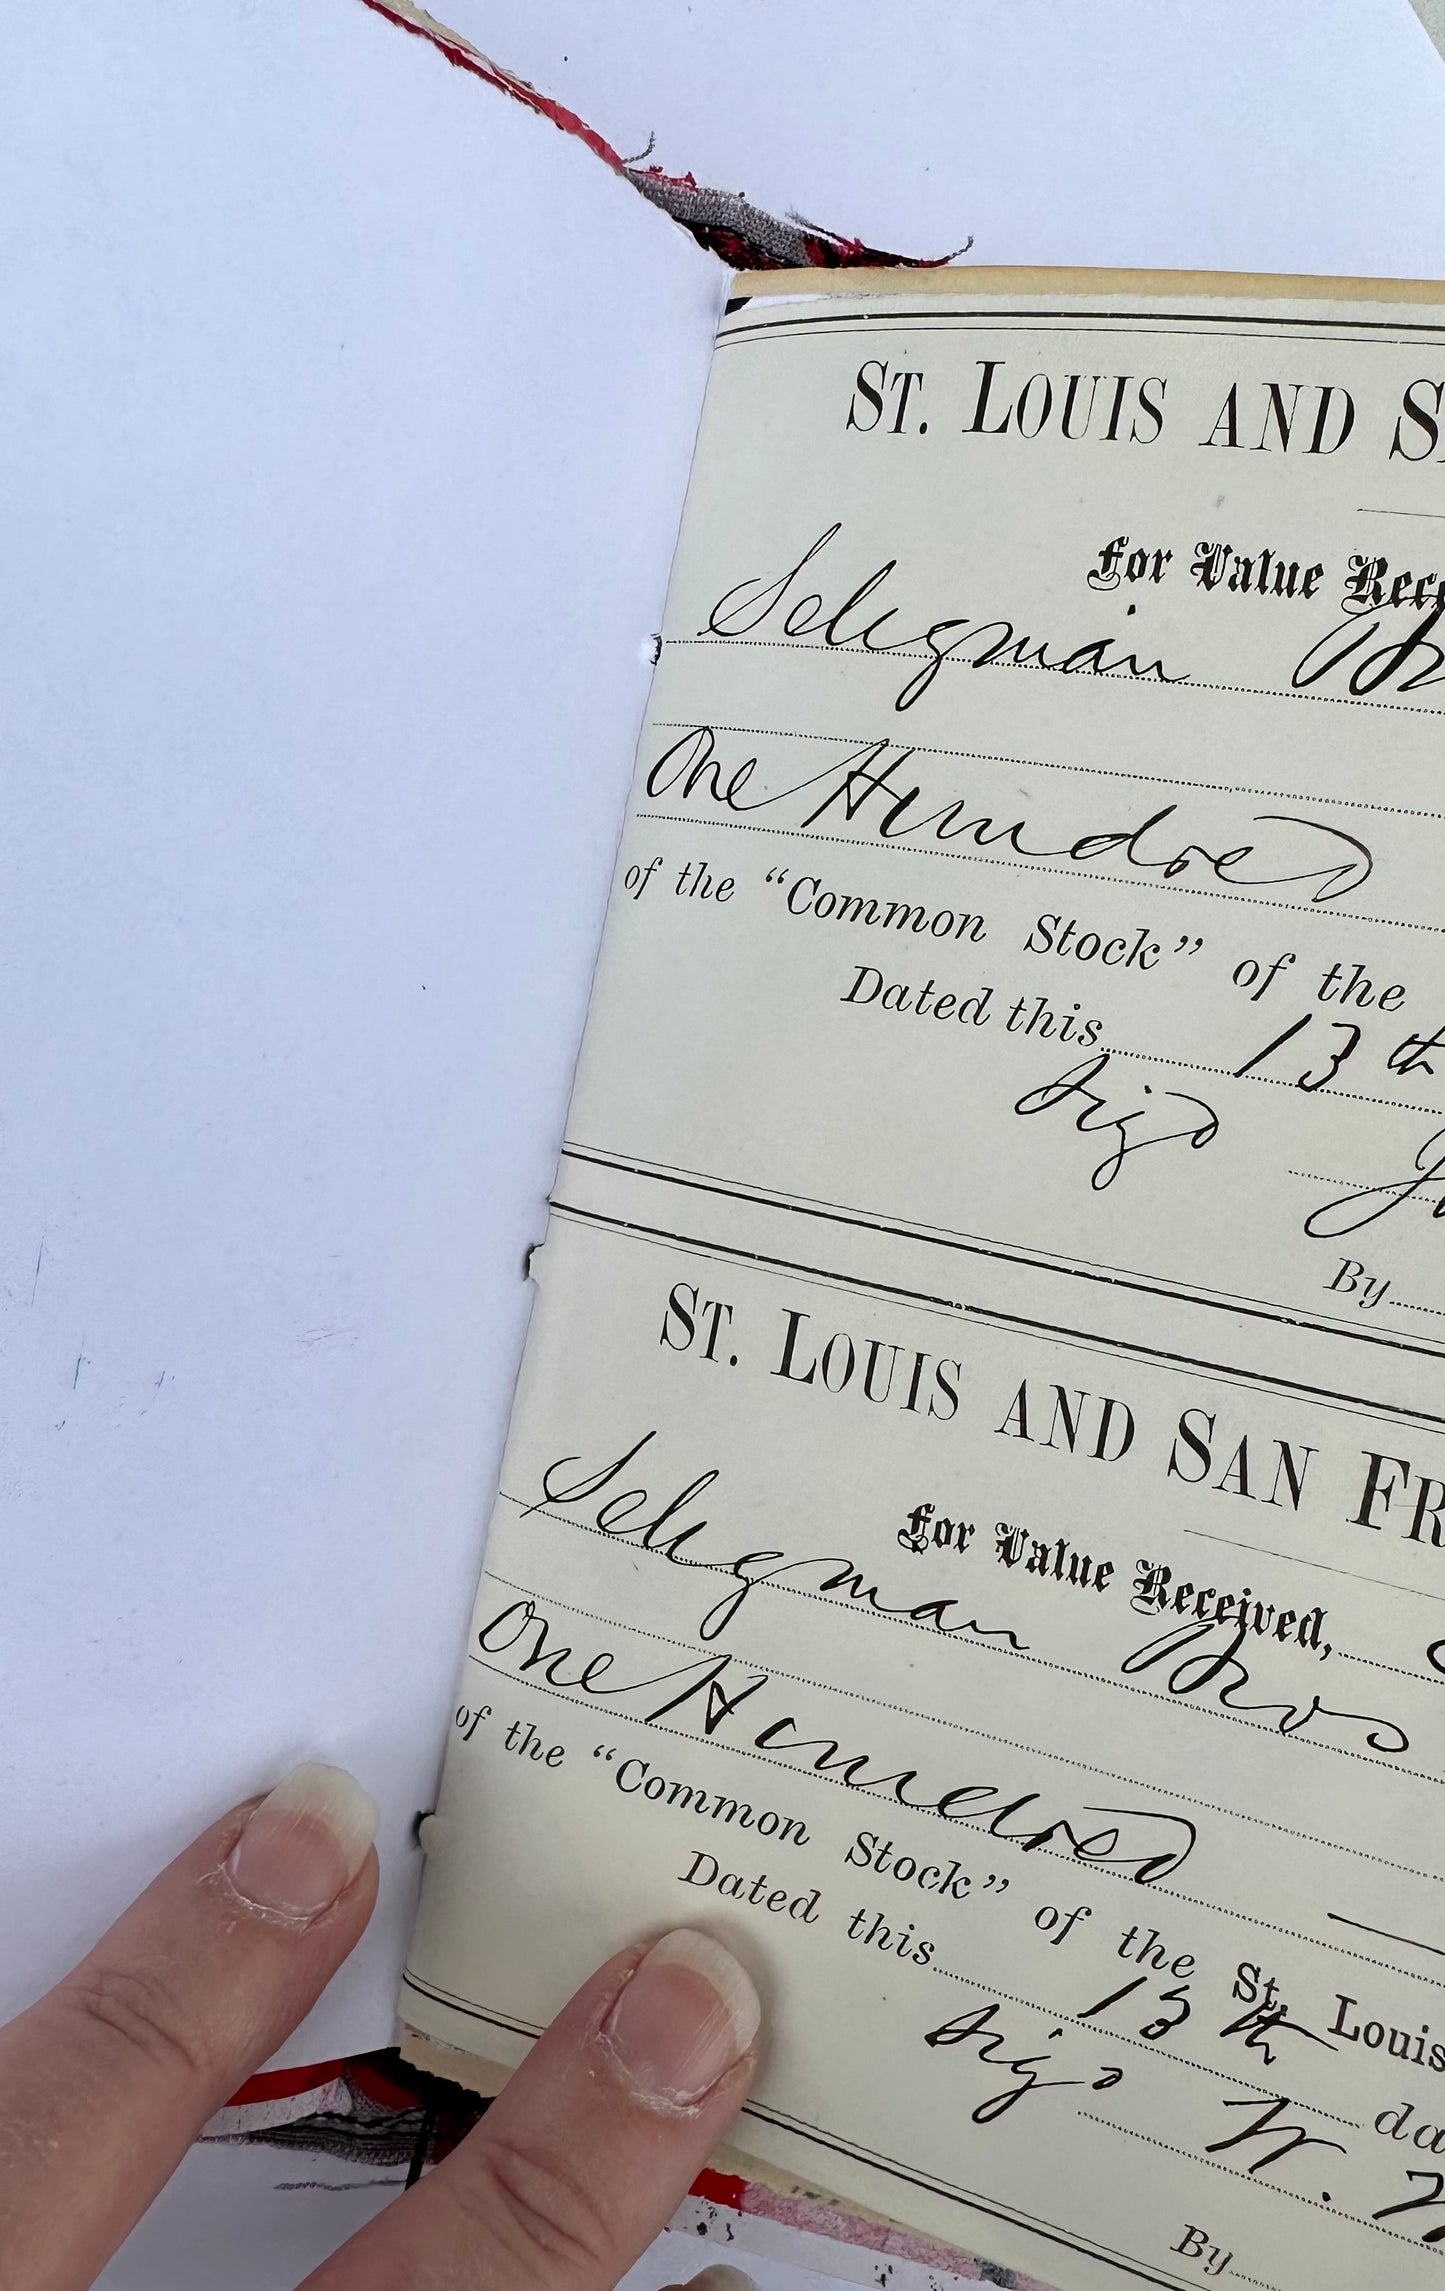 ST. LOUIS AND S
For Value Rece
Seligman Br
One Hundred
of the “Common Stock” of the
Dated this 13th
Sigd
By
ST. LOUIS AND SAN FR
For Value Received,
Seligman Bros
One Hundred
of the “Common Stock” of the St. Louis
Dated this 13th da
Sigd W.
By